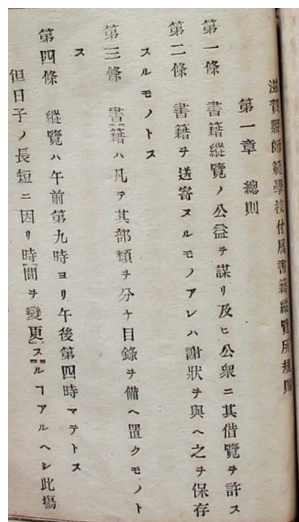 滋賀縣師範學校付屬書籍縱覽所規則
第一章　總則
第一條　書籍縱覽ノ公益ヲ謀リ及ヒ公衆ニ其借覽ヲ許ス
第二條　書籍ヲ送寄スルモノアレハ謝狀ヲ與ヘ之ヲ保存
スルモノトス
第三條　書籍ハ凡テ其部類ヲ分ケ目錄ヲ備ヘ置クモノト
ス
第四條　縱覽ハ午前第九時ヨリ午後第四時マテトス
但日子ノ長短ニ因リ時間ヲ變更スルヿアルヘシ此塲